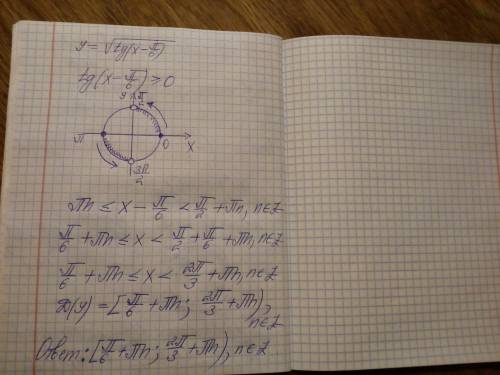 y = √tg(x - π/6)
tg(x - π/6) ≥ 0
y π/2
π 0 x
3π/2
πn ≤ x - π/6 < π/2 + πn, n∈Z
π/6 + πn ≤ x < π/2 + π/6 + πn, n∈Z
π/6 + πn ≤ x < 2π/3 + πn, n∈Z
D(y) = [π/6 + πn; 2π/3 + πn),
n∈Z
Ответ: [π/6 + πn; 2π/3 + πn), n∈Z